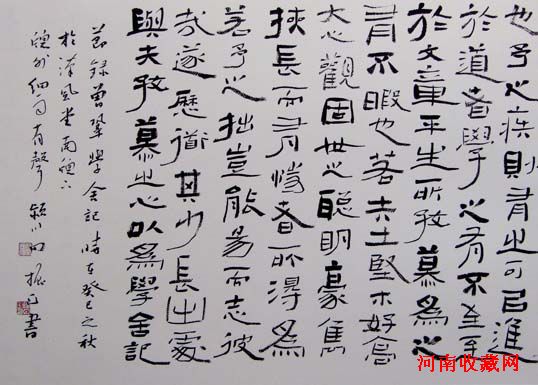 也予之疾則有之可㠯進
於道者學之有不至至
於文章平生所好慕為之
有不暇也若夫土堅木好高
大之觀固世之聰明豪雋
挾長而有恃者所得為
若予之拙豈能易而志彼
哉遂歷道其少長出處
與夫好慕之心以為學舍記
節錄曾鞏學舍記 時在癸巳之秋
於漢風堂南窗下
窗外細雨有聲 潁川 振 書
河南收藏网